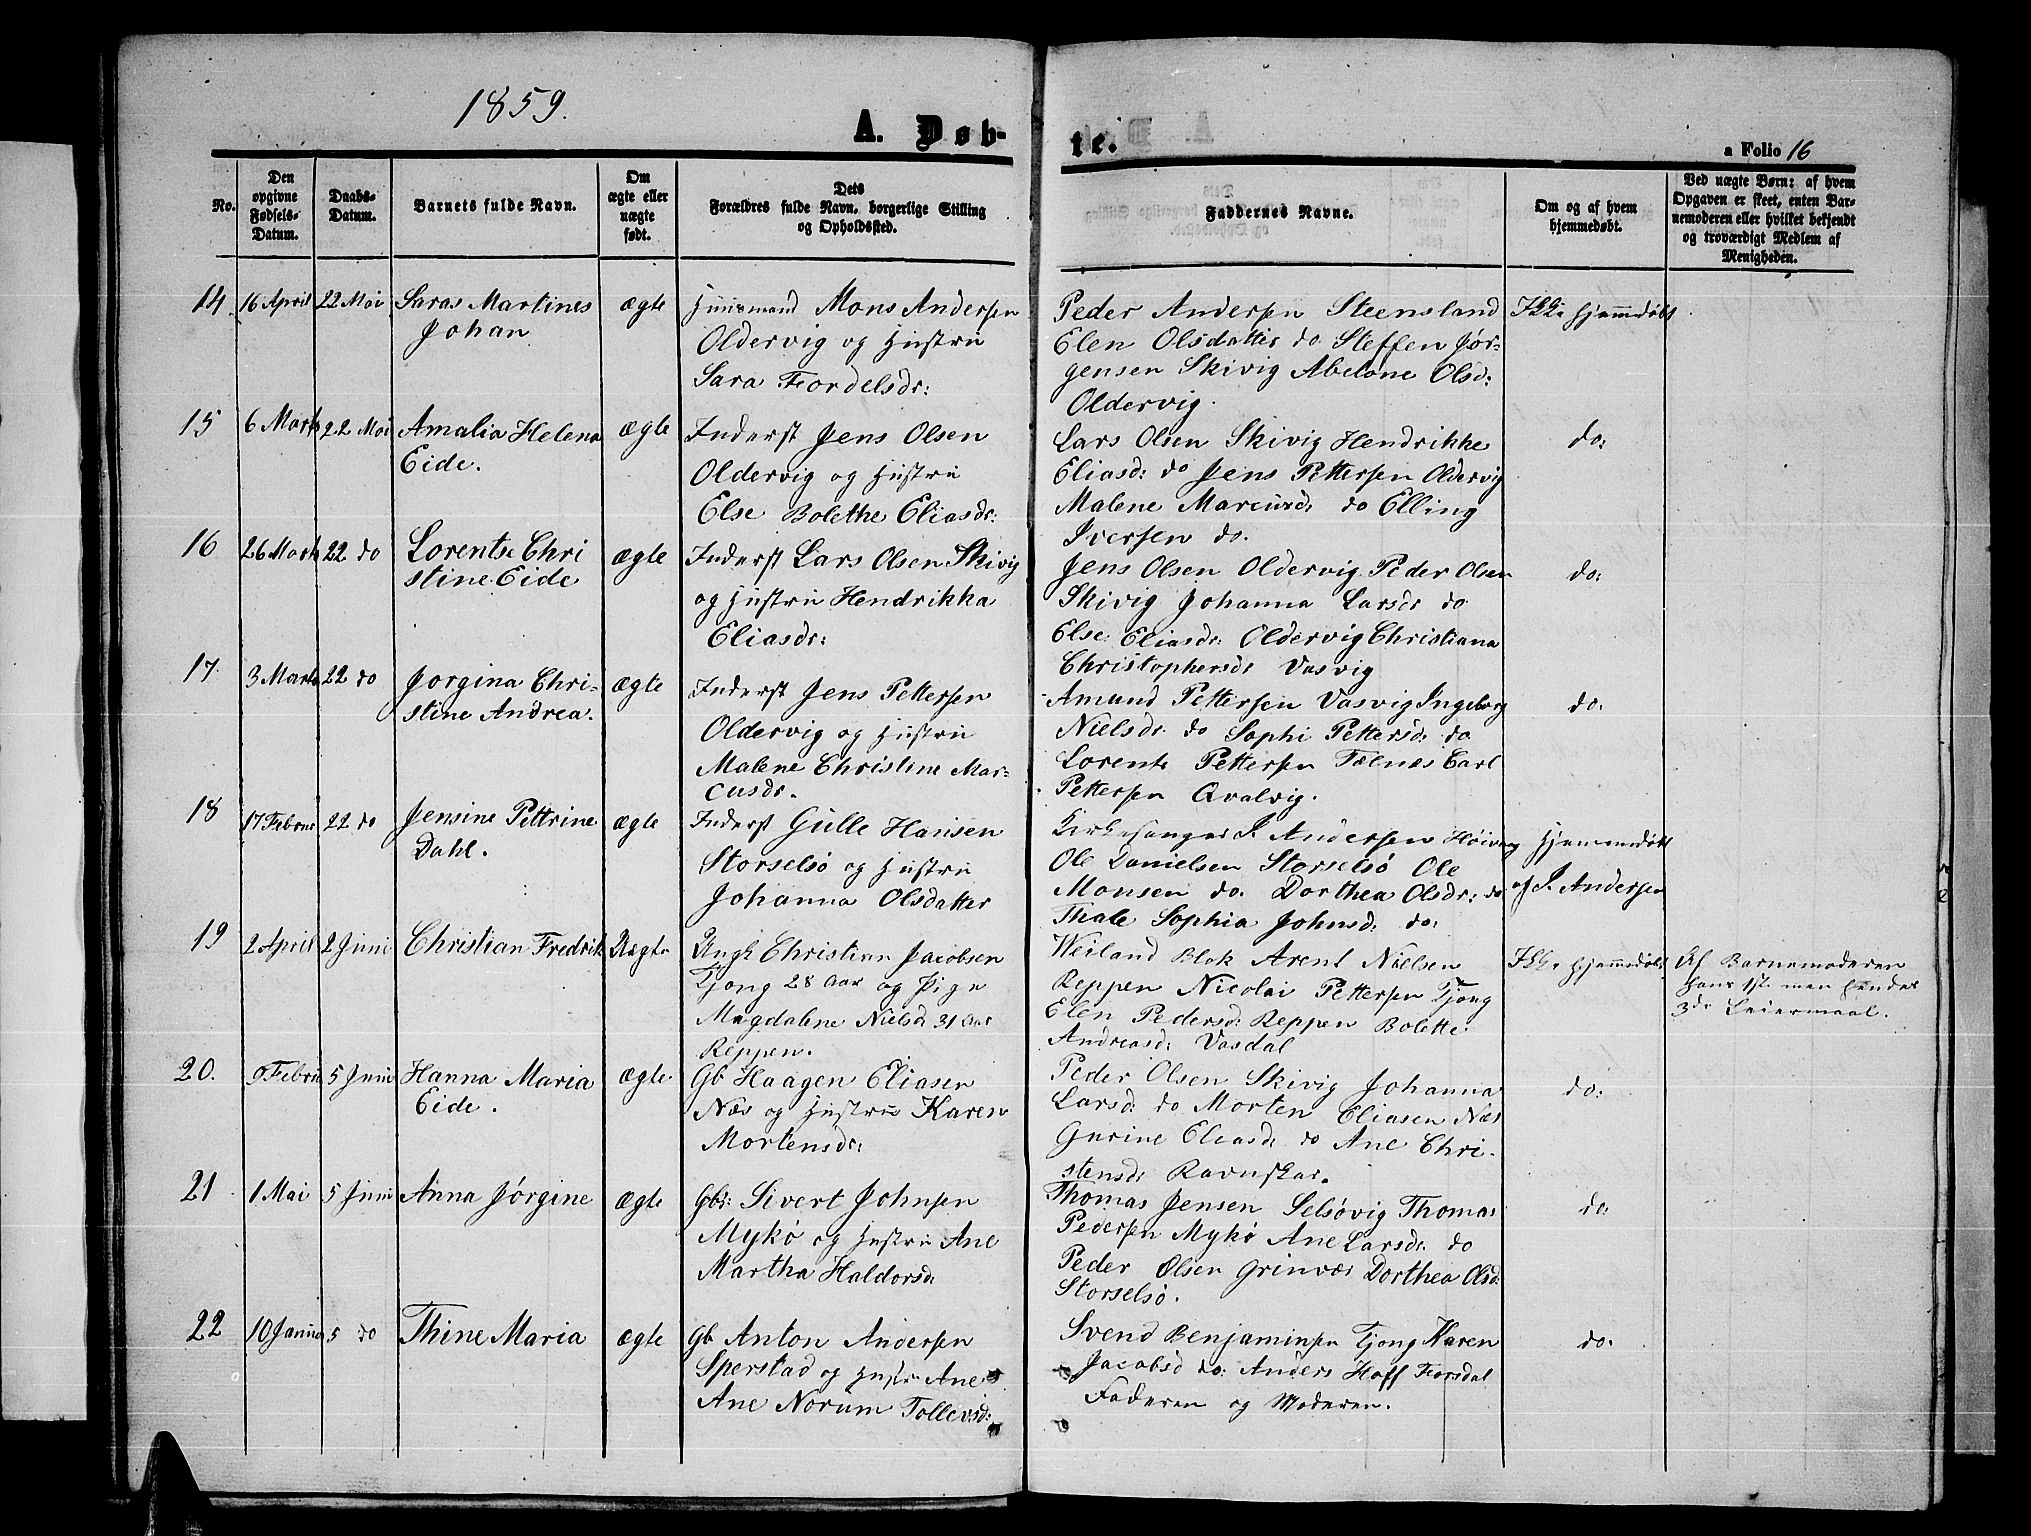 1859.
A. Døb-
te.
a Folio 16
No.
Den opgivne Fødsels-Datum.
Daabs-Datum.
Barnets fulde Navn.
Om ægte eller uægte født.
Dets Forældres fulde Navn, borgerlige Stilling og Opholdssted.
Faddernes Navne.
Om og af hvem hjemmedøbt.
Ved uægte Børn: af hvem Opgaven er skeet, enten Barnemoderen eller hvilket bekjendt og troværdigt Medlem af Menigheden.
14 16 April 22 Mai Saras Martines ægte Huusmand Mons Andersen
Johan
Oldervig og Hustru
Sara Fordelsdr:
Peder Andersen Steensland Ikke hjemmdøbt
Elen Olsdatter do Steffen Jør-
gensen Skivig Abelone Olsd:
Oldervig.
15 6 Marts 22 Mai Amalia Helena ægte Inderst Jens Olsen
Eide.
Oldervig og Hustru
Else Bolethe Eliasdr:
Lars Olsen Skivig Hendrikke do:
Eliasd: do Jens Pettersen Oldervig
Malene Marcusd: do Elling
Iversen do.
16 26 Marts 22 do Lorentse Chri ægte Inderst Lars Olsen Skivig
stine Eide
og Hustru Hendrikka
Eliasdr:
Jens Olsen Oldervig Peder Olsen do:
Skivig Johanna Larsdr do
Else Eliasdr: Oldervig Christiana
Christophersdr Vasvig
17 3 Marts 22 do Jorgina Chri- ægte Inderst Jens Pettersen
stine Andrea.
Oldervig og Hustru
Malene Christine Mar-
cusdr.
Amund Pettersen Vasvig Ingeborg do:
Nielsdr do Sophi Pettersdr do
Lorents Pettersen Følnæs Carl
Pettersen Qvalvig.
18 17 Februar 22 do Jensine Pettrine ægte Inderst Gulle Hansen
Dahl.
Storselsø og Hustru
Johanna Olsdatter
Kirkesanger J. Andersen Høivaag Hjemmedøbt
Ole Danielsen Storselsø Ole
Monsen do. Dorthea Olsdr: do af J. Andersen
Thale Sophia Johnsd: do:
19 2 April 2 Juni Christian Fredrik Uægte Ungk Christian Jacobsen
Tjong 28 Aar og Pige
Magdalene Nielsd 31 Aar
Reppen.
Weiland Blok Arent Nielsen Ikke hjemmdøbt Af Barnemoderen
Reppen Nicolai Pettersen Tjong hans 1ste men hendes
Elen Pedersd: Reppen Bolette 3de Leiermaal.
Andreasd: Vasdal
20. 9 Februar 5 Juni Hanna Maria ægte. Gb Haagen Eliasen
Eide.
Næs og Hustru Karen
Mortensdr:
Peder Olsen Skivig Johanna do:
Larsd: do Morten Eliasen Næs
Gurine Eliasd: do Ane Chri-
stensd: Ravnskar.
21 1 Mai 5 Juni Anna Jørgine ægte Gbr: Sivert Johnsen
Mykø og Hustru Ane
Martha Haldorsd:
Thomas Jensen Selsøvig Thomas do:
Pedersen Mykø Ane Larsdr do
Peder Olsen Grinvær Dorthea Olsd:
Storselsø.
22 10 Januar 5 do Thine Maria ægte Gb Anton Andersen
Sperstad og Hustr Ane
Ane Norum Tollevsd:
Svend Benjaminsen Tjong Karen do:
Jacobsd do: Anders Hoff Forsdal
Faderen og Moderen.